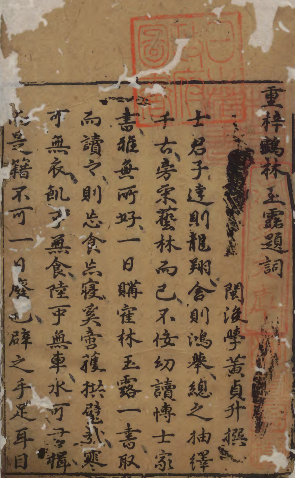 重梓鶴林玉露題詞
閩後學黃貞升撰
士君子達則龍翔舍則鴻舉總之抽繹
千古旁采藝林而已不佞幼讀博士家
書雅無所好一日購霍林玉露一書取
而讀之則忘食忘寢奚啻獲拱璧氷寒
可無衣飢可無食陸可無車水可無楫
景籍不可一日廢 辟之手足耳目